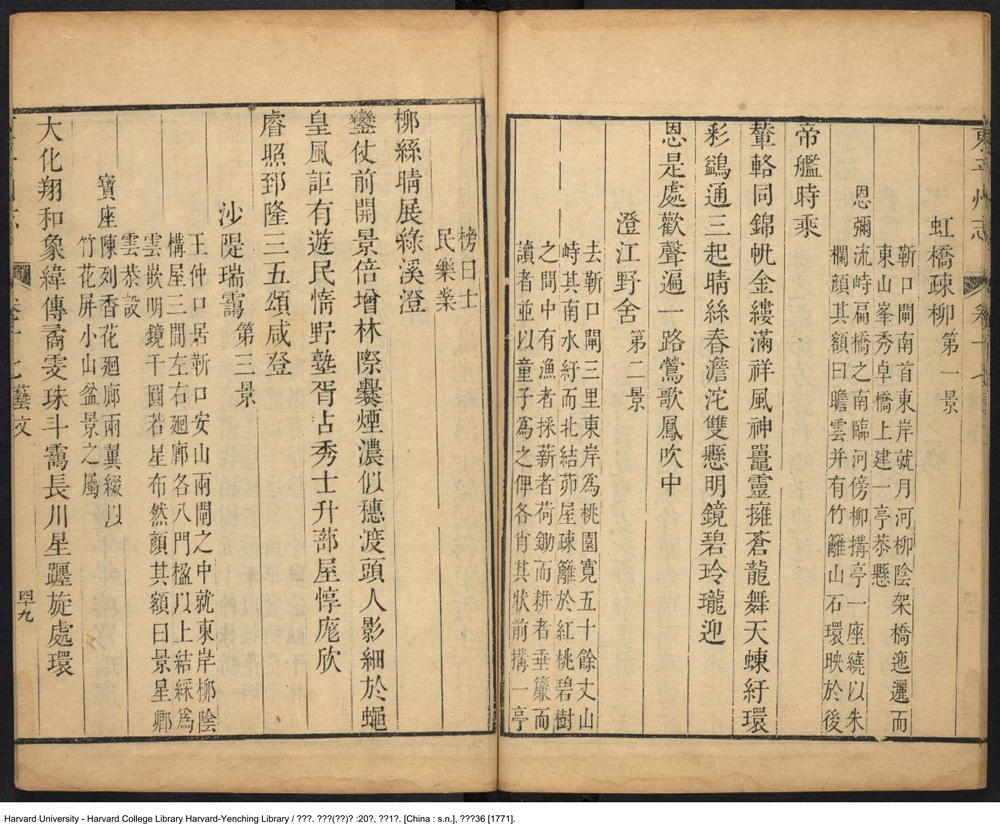 東平州志
卷十七
虹橋疎柳第一景
靳口閘南首東岸就月河柳陰架橋迤邐而
東山峯秀卓橋上建一亭恭懸
恩彌流峙扁橋之南臨河傍柳搆亭一座繞以朱
欄顔其額曰瞻雲并有竹籬山石環映於後
帝艦時乘
輦輅同錦帆金縷滿祥風神鼉靈擁蒼龍舞天蝀紆環
彩鷁通三起晴絲春澹沱雙懸明鏡碧玲瓏迎
恩是處歡聲遍一路鶯歌鳳吹中
澄江野舍第二景
去靳口閘三里東岸為桃園寬五十餘丈山
峙其南水紆而北結茆屋疎籬於紅桃碧樹
之間中有漁者採薪者荷鋤而耕者垂簾而
讀者並以童子為之俾各肖其狀前搆一亭
榜曰士
民樂業
柳絲晴展綠溪澄
鑾仗前開景倍增林際爨煙濃似穗渡頭人影細於蠅
皇風詎有遊民惰野塾胥占秀士升蔀屋惇厖欣
睿照郅隆三五頌咸登
沙隄瑞靄第三景
王仲口居靳口安山兩閘之中就東岸柳陰
構屋三間左右廻廊各八門楹以上結綵為
雲嵌明鏡千圓若星布然顔其額曰景星卿
雲恭設
寶座陳列香花廻廊兩翼綴以
竹花屏小山盆景之屬
大化翔和象緯傳矞雯珠斗靄長川星躔旋處環
卷十七藝文
四十九
Harvard University - Harvard College Library Harvard-Yenching Library / ???. ???(??)? :20?, ??1?. [China : s.n.], ???36 [1771].